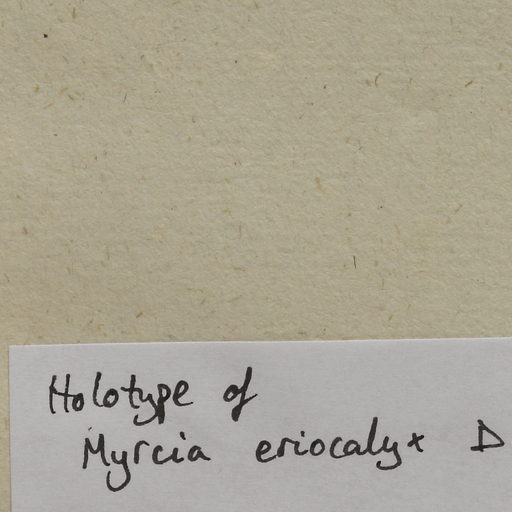 Holotype of
Myrcia eriocalyx D